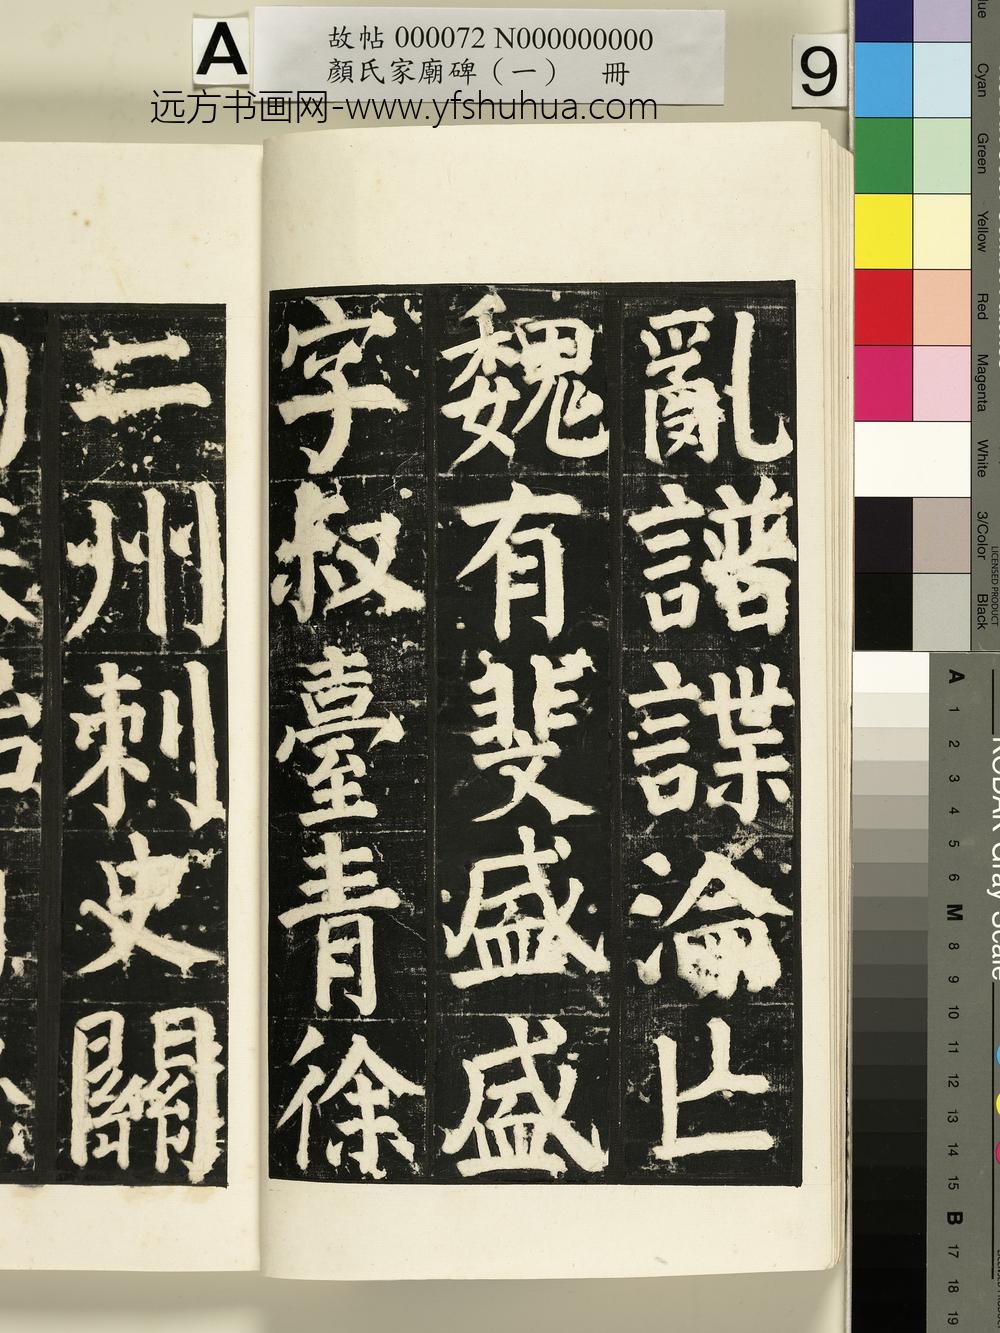 A
故帖 000072 N000000000
顏氏家廟碑（一） 冊
9
远方书画网-www.yfshuhua.com
亂譜諜淪亾
魏有斐盛盛
字叔臺青徐
二州刺史關
Cyan
Green
Yellow
Red
Magenta
White
3/Color
Black
LICENSED PRODUCT
KODAK Gray Scale
A 1 2 3 4 5 6 M 8 9 10 11 12 13 14 15 B 17 18 19